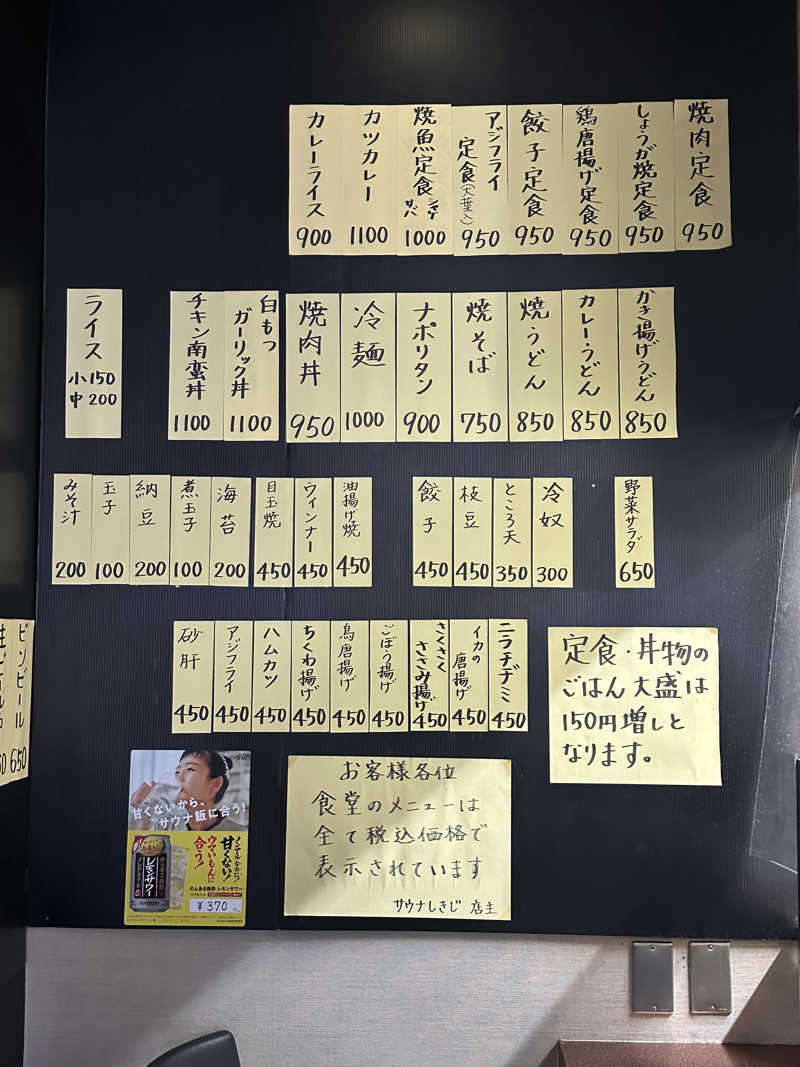 焼肉定食 950
しょうが焼定食 950
鶏唐揚げ定食 950
餃子定食 950
アジフライ
定食(大葉入) 950
焼魚定食 シャケ サバ 1000
カツカレー 1100
カレーライス 900
かき揚げうどん 850
カレーうどん 850
焼うどん 850
焼そば 750
ナポリタン 900
冷麺 1000
焼肉丼 950
白もつ
ガーリック丼 1100
チキン南蛮丼 1100
ライス
小150
中200
野菜サラダ 650
冷奴 300
ところ天 350
枝豆 450
餃子 450
油揚げ焼 450
ウィンナー 450
目玉焼 450
海苔 200
煮玉子 100
納豆 200
玉子 100
みそ汁 200
ニラチヂミ 450
イカの
唐揚げ 450
さくさく
ささみ揚げ 450
ごぼう揚げ 450
鳥唐揚げ 450
ちくわ揚げ 450
ハムカツ 450
アジフライ 450
砂肝 450
ビンビール 650
定食・丼物の
ごはん大盛は
150円増しと
なります。
お客様各位
食堂のメニューは
全て税込価格で
表示されています
サウナしきじ 店主
甘くないから、
サウナ飯に合う!
ノンアルなのに
甘くない!
ウマいもんに
合う!
レモンサワー
のんある晩酌 レモンサワー
SUNTORY
¥370